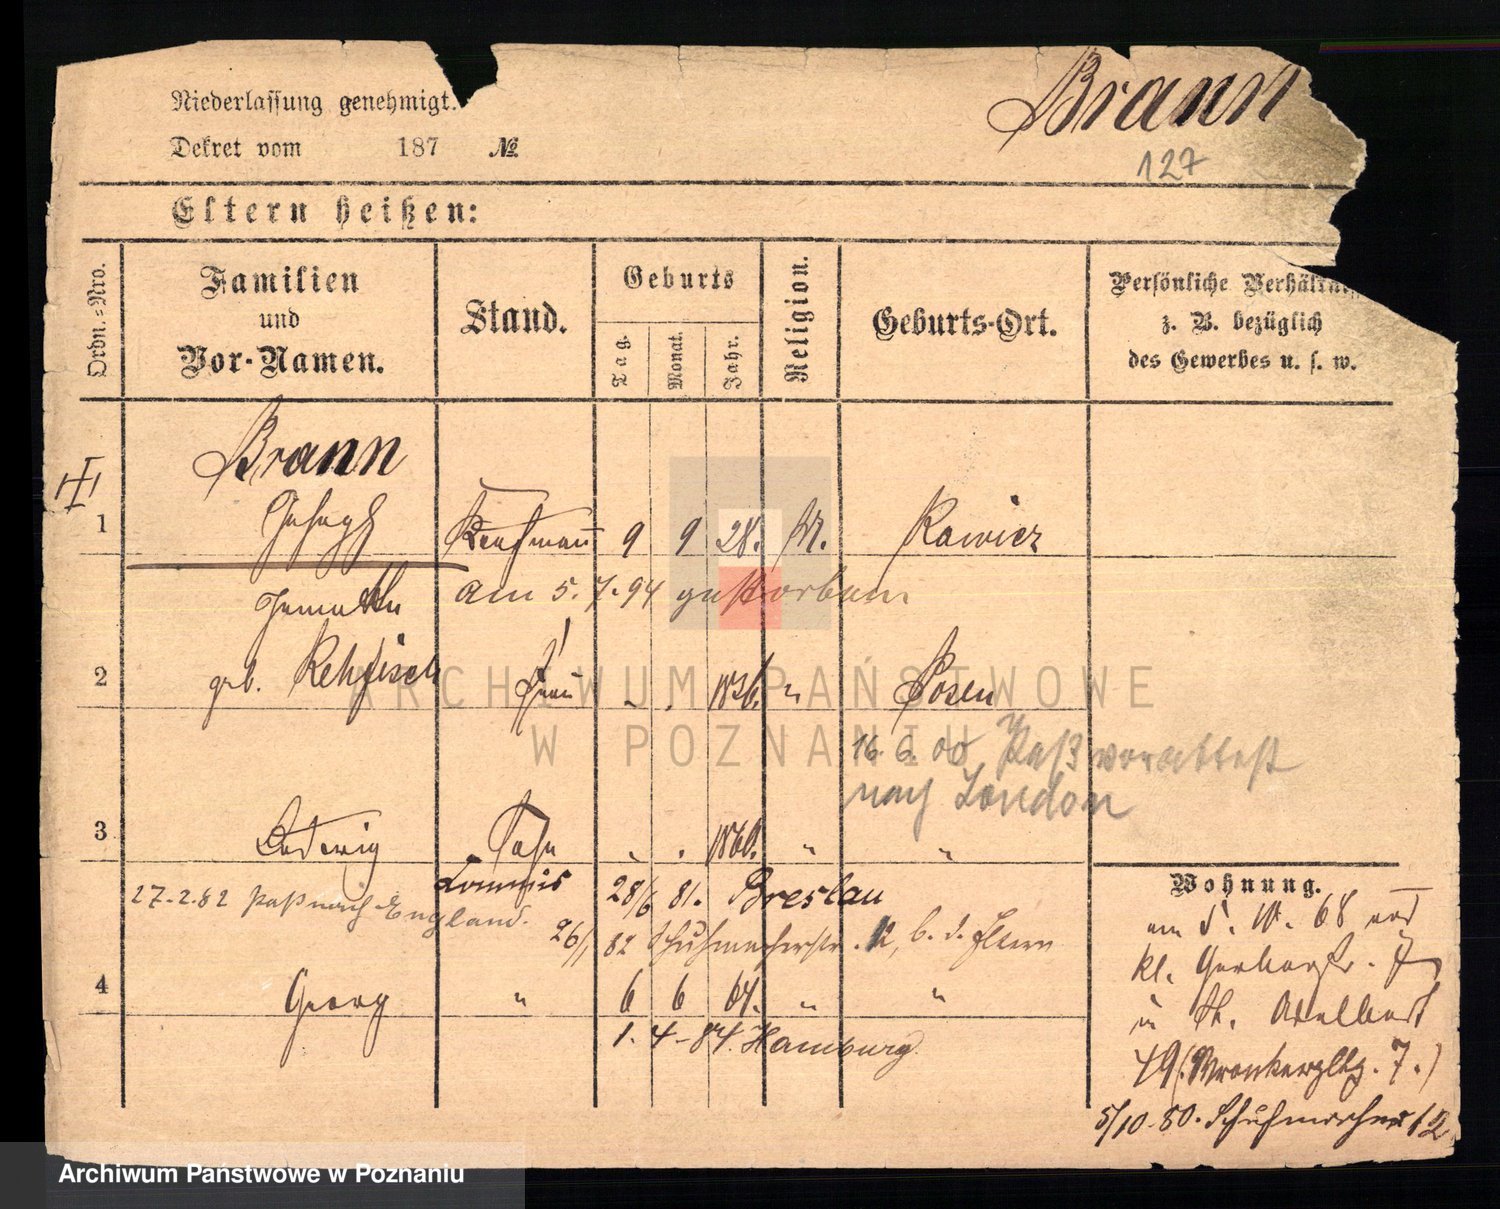 Niederlassung genehmigt.
Dekret vom 187 №
Brann
127
Eltern heißen:
Ordn.-Nro.
Familien und Vor-Namen.
Stand.
Geburts
Tag
Monat.
Jahr.
Religion.
Geburts-Ort.
Persönliche Verhältnis
z. B. bezüglich
des Gewerbes u. s. w.
Brann
1 Joseph Kaufmann 9 9 28. M. Rawicz
am 5.7.94 gestorben
2 geb. Rehfisch Frau 1836. " Posen
16.6.00 Paß
nach London
3 Ludwig Sohn 1860. " "
Commis 28/6 81. Breslau
27.2.82 Paß nach England.
26/1 82 Schuhmacherstr. 12, b. d. Eltern
4 Georg " 6 6 64. " "
1.4-84. Hamburg.
Wohnung.
68
kl. Gerberstr. 7
in St. Adalbert
49 (Wronkerpltz. 7.)
5/10.80. Schuhmacher 12
ARCHIWUM PAŃSTWOWE
W POZNANIU
Archiwum Państwowe w Poznaniu